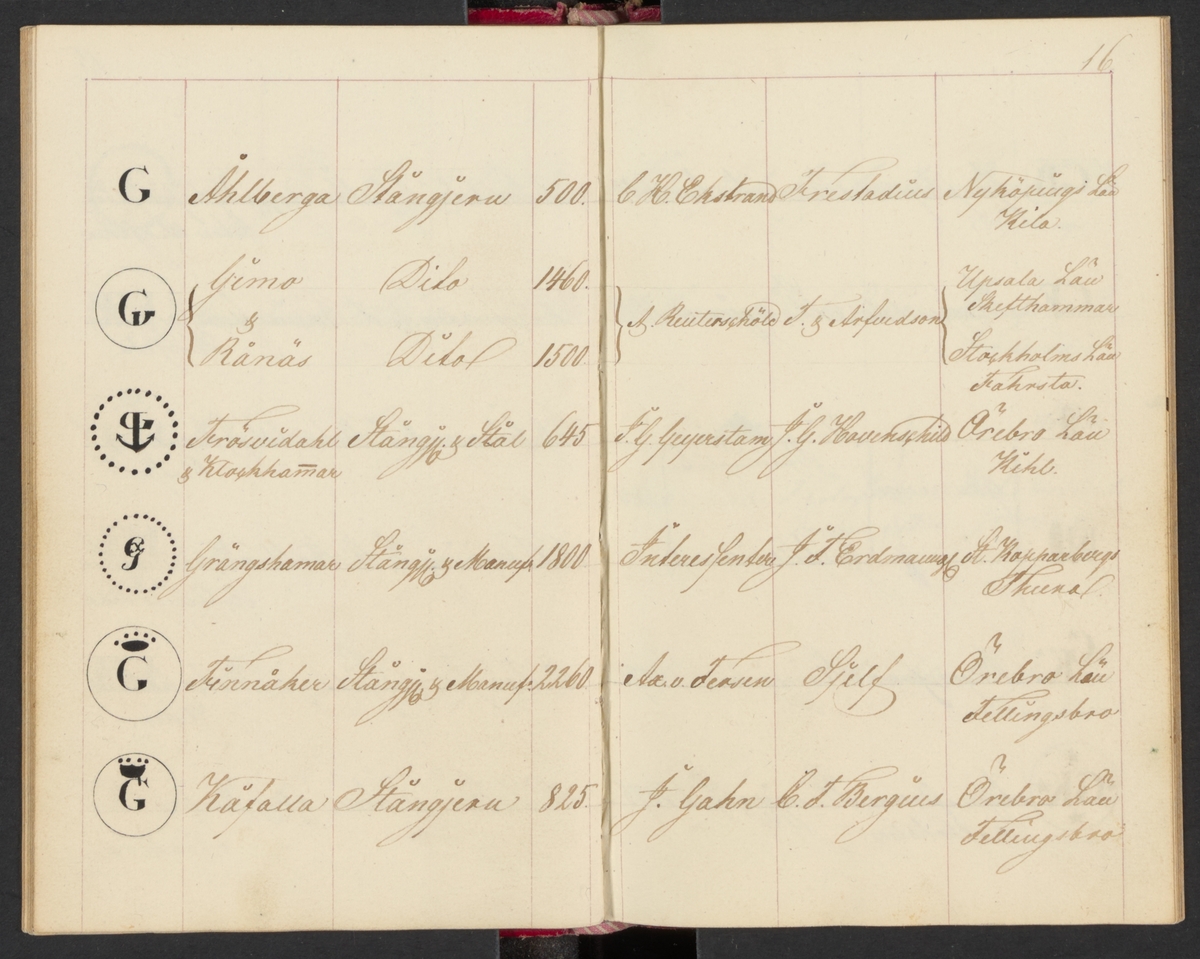 16
G Åhlberga Stångjern 500. C. H. Ekstrand Frestadius Nyköpings Län
Kila.
Gimo Dito 1460. Upsala Län
G & A. Reuterschöld F. & Arfvedson Skefthammar
Rånäs Dito 1500 Stockholms Län
Fahrsta.
Frösvidahl Stångj. & Stål 645 J. G. Geyerstam J. G. Havenschild Örebro Län
& Klockham̅ar Kihl.
Grängshamar Stångj. & Manuf. 1800 Interessenter J. F. Erdmann St. Kopparbergs
Thuna.
G Finnåker Stångj. & Manuf. 2260 Ax. v. Fersen Sjelf Örebro Län
Fellingsbro
G Kåfalla Stångjern 825. J. Gahn C. F. Bergius Örebro Län
Fellingsbro